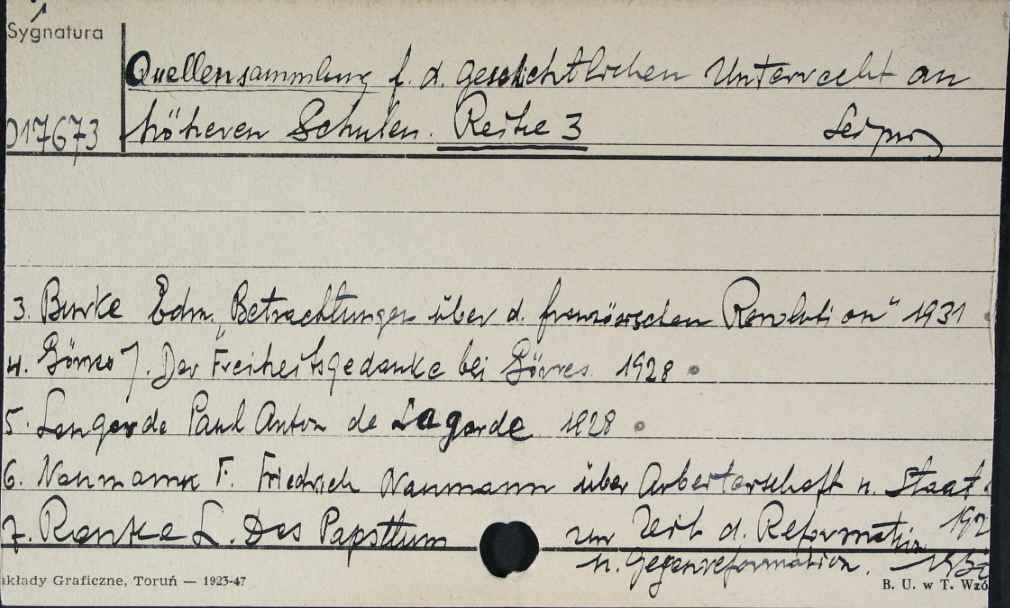 Sygnatura
Quellensammlung f. d. geschichtlichen Unterrecht an
017673 höheren Schulen. Reihe 3
3. Burke Edm. "Betrachtungen über d. französischen Revolution" 1931
4. Görres J. Der Freiheitsgedanke bei Görres 1928
5. Langarde Paul Anton de Lagarde 1828
6. Naumann F. Friedrich Naumann über Arbeiterschaft u. Staat
192
7. Ranke L. Das Papsttum zur Zeit d. Reformation
u. Gegenreformation.
akłady Graficzne, Toruń — 1923-47
B. U. w T. Wzó